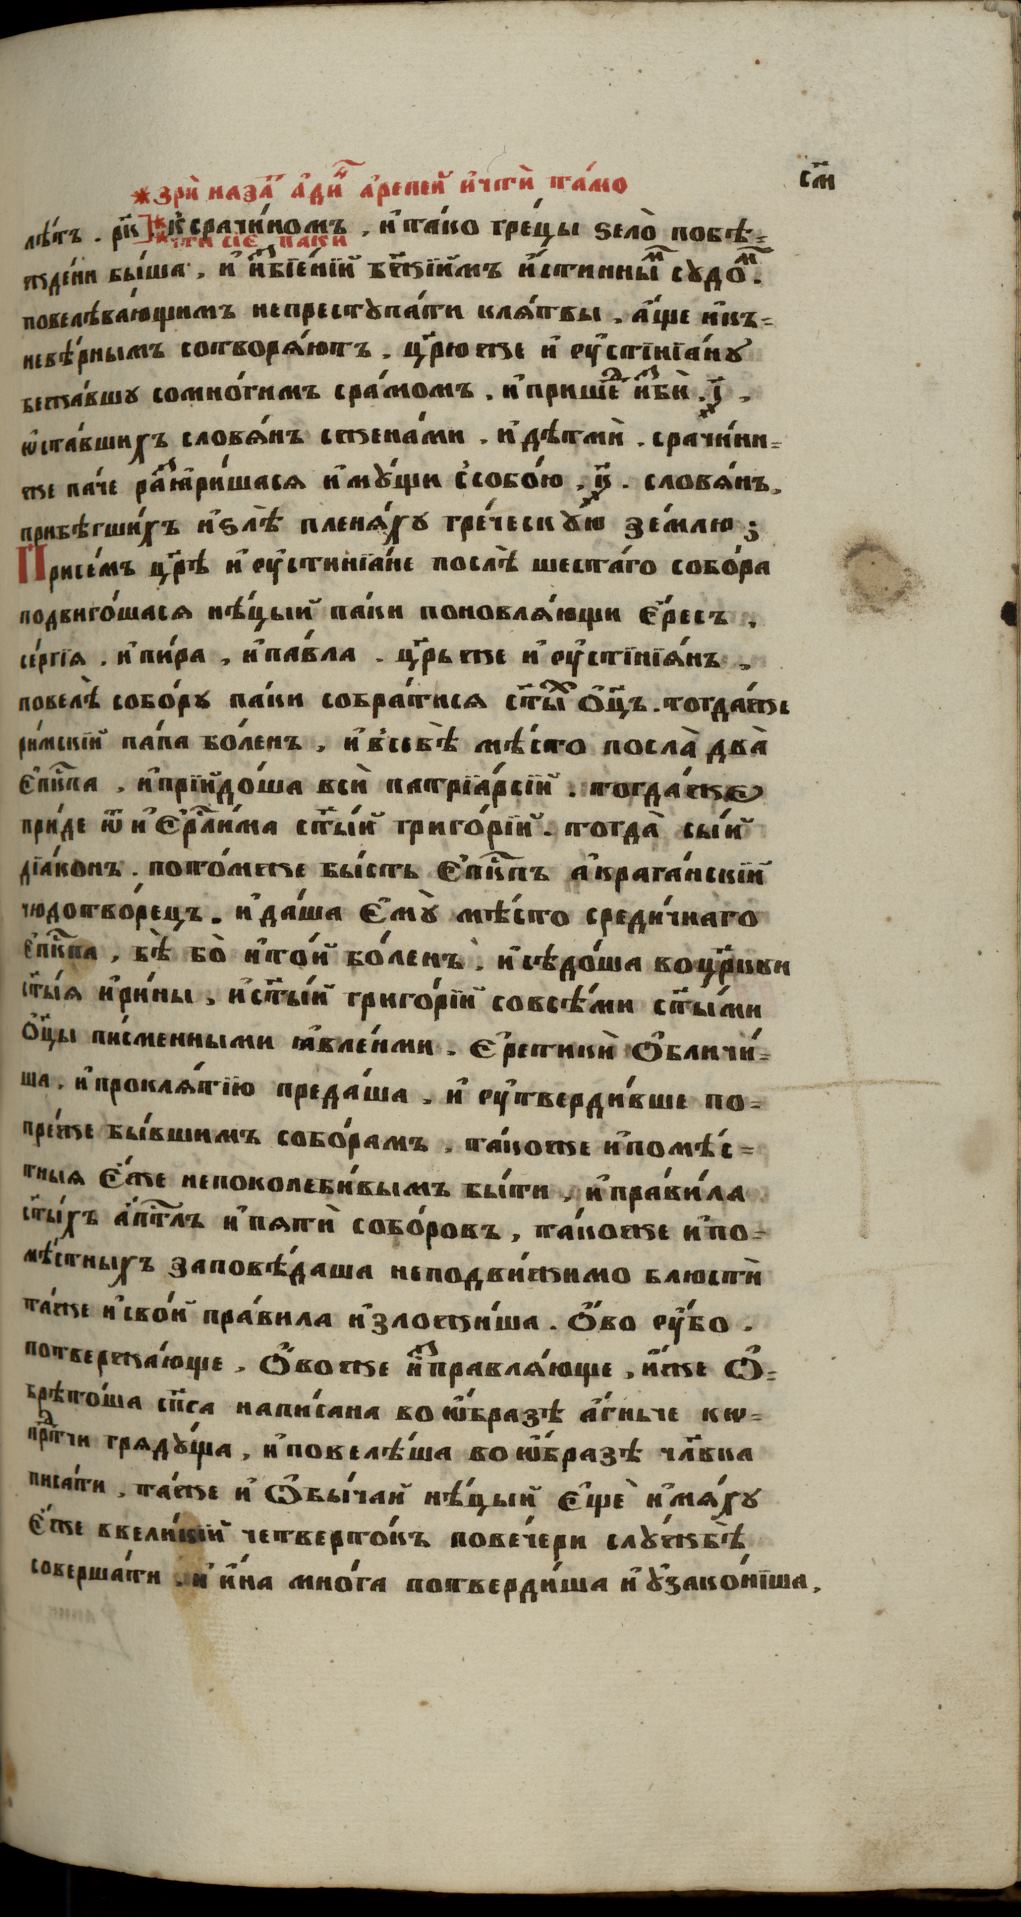 *зрѝ наза҃ а҆ди́н а҆репей и҆чтѝ та́мо
с҃м
лѣ́тъ . р҃к к̾срачи́номъ , и҆та́ко гре́цы ѕело̀ побѣ-
*чти сїѐ паки
жде́ни бы́ша , и҆ и҆збїе́нїи бж҃їимъ и҆стинны́м судо́м .
повелѣва́ющимъ непреступа́ти кля́твы , а҆́ще и҆къ-
невѣ́рнымъ сотворя́ютъ . цр҃ю же и҆ є҆ѵстїнїа́ну
бежа́вшу сомно́гимъ сра́момъ . и҆прише́д и҆збѝ . і҃ ,
ѡ҆ста́вшихъ словя́нъ сжена́ми . и҆дѣтмѝ . срачи́ни-
же па́че разъяри́шася и҆му́щи с̾собо́ю , к҃ . словя́нъ ,
прибѣ́гшихъ и҆ѕлѣ̀ пленя́ху гре́ческую зе́млю ;
Присе́мъ цр҃ѣ и҆ є҆ѵстинїа́не послѣ̀ шеста́го собо́ра
подвиго́шася нѣ́цыи па́ки поновля́ющи є҆́ресь ,
се́ргїя . и҆пи́ра , и҆па́вла . цр҃ь же и҆ є҆ѵстїнїя́нъ ,
повелѣ̀ собо́ру па́ки собра́тися ст҃ы́х ѻ҆ц҃ъ . тогда́же
ри́мскїй па́па бо́ленъ , и҆в̾себѣ̀ мѣ́сто посла̀ два̀
є҆пⷭ҇кпа , и҆прїидо́ша всѝ патрїа́рсїи . тогда́же
прїи́де ѿ и҆є҆рⷭ҇ли́ма ст҃ы́й григо́рїй . тогда̀ сы́й
дїа́конъ . пото́мже бы́сть є҆пⷭ҇кпъ а҆крага́нскїй
чюдотво́рецъ . и҆да́ша є҆му̀ мѣ́сто среди́чнаго
є҆пⷭ҇кпа , бѣ̀ бо̀ и҆то́й бо́ленъ , и҆сѣдо́ша во цр҃кви
ст҃ы́я и҆ри́ны , и҆ст҃ы́й григо́рїй совсѣ́ми ст҃ы́ми
ѻ҆ц҃ы пи́сменными ꙗ҆вле́ими . є҆ретикѝ ѻ҆бличи́-
ша , и҆прокля́тїю преда́ша , и҆ є҆утверди́вше по-
пре́же бы́вшимъ собо́рамъ , та́коже и҆помѣ́с-
тныя є҆́же непоколеби́вымъ бы́ти , и҆пра́вила
ст҃ы́хъ а҆пⷭ҇тлъ и҆пятѝ собо́ровъ , та́коже и҆по-
мѣ́стныхъ заповѣ́даша неподви́жимо блюстѝ
та́же и҆свои́ пра́вила и҆зложи́ша . ѻ҆́во є҆у҆́бо .
потвержа́юще , ѻ҆́во же и҆справля́юще , и҆́же ѻ҆-
брѣто́ша сп҃са напи́сана во ѡ҆́бразѣ а҆́гньче кѡ-
прⷣтчи гряду́ща , и҆повелѣ́ша во ѡ҆́бразѣ чл҃вка
писа́ти , та́же и҆ ѻ҆бы́чай нѣ́цыи є҆щѐ и҆мя́ху
є҆́же ввели́кїй четверто́къ повече́ри слу́жбѣ
соверша́ти . и҆ и҆́на мно́га потверди́ша и҆ у҆зако́нїша ,